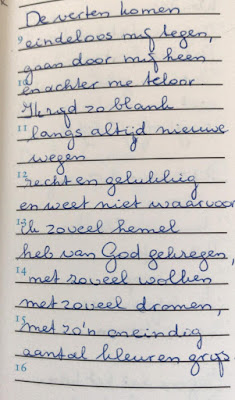 De verten komen
9 eindeloos mij tegen,
gaan door mij heen
10 en achter me teloor.
Ik rijd zo blank
11 langs altijd nieuwe
wegen
12 recht en gelukkig
en weet niet waarvoor
13 ik zoveel hemel
heb van God gekregen,
14 met zoveel wolken
met zoveel dromen,
15 met zo'n oneindig
aantal kleuren grijs
16